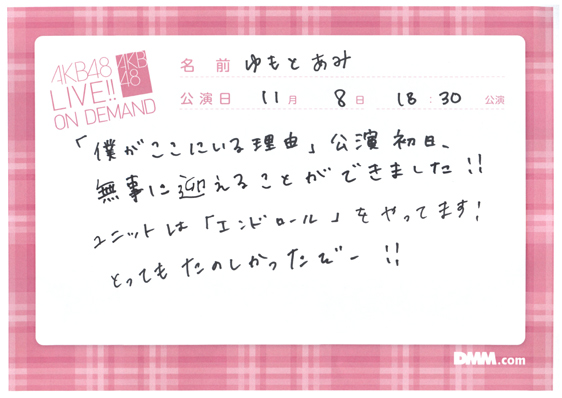 AKB48
LIVE!!
ON DEMAND
AKB
48
名前 ゆもとあみ
公演日 11月 8日 18:30 公演
「僕がここにいる理由」公演初日、
無事に迎えることができました!!
ユニットは「エンドロール」をやってます!
とってもたのしかったぞー!!
DMM.com